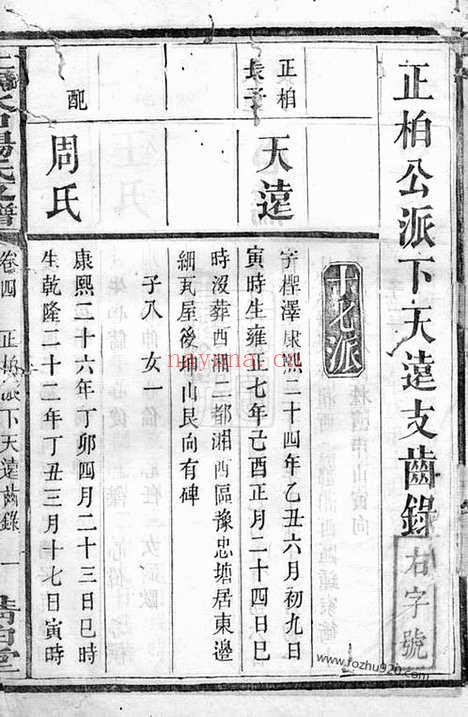 正柏公派下天遠支齒錄
右字號
十七派
正柏
長子
天遠
字樫澤康熙二十四年乙丑六月初九日
寅時生雍正七年己酉正月二十四日巳
時沒葬西湘二都湘西區豫忠塘居東邊
細瓦屋後坤山艮向有碑
子八 女一
配
周氏
康熙二十六年丁卯四月二十三日巳時
生乾隆二十二年丁丑三月十七日寅時
卷四 正柏派下天遠齒錄 一 清白堂
nayona.cn
www.fozhu920.com